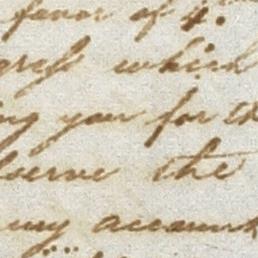 favor of 4.
gress which
ing you for
serve the
my account